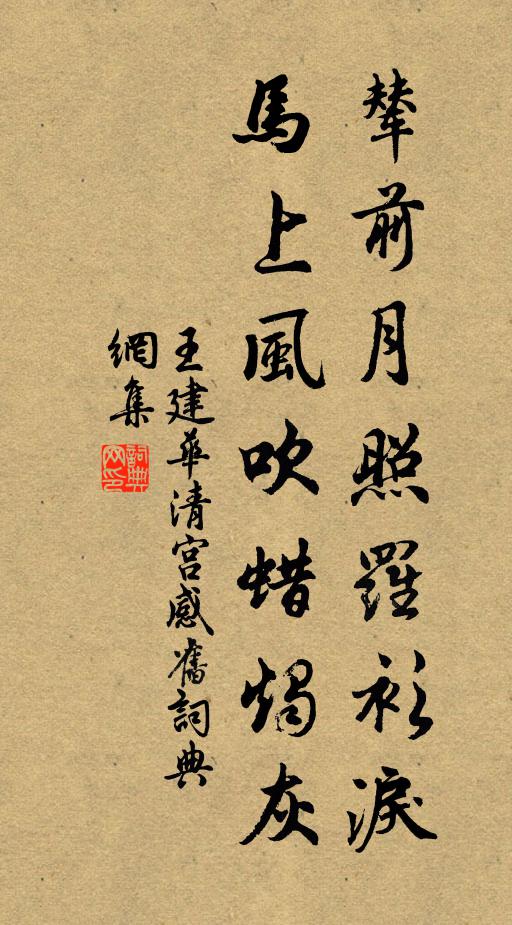 輦前月照羅衫淚
馬上風吹蜡燭灰
王建華清宮感舊詞典
網集
詞典
网印